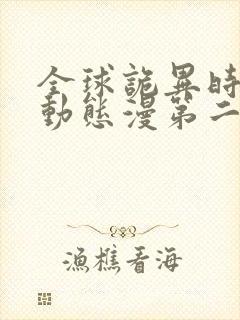 全球詭異時
動態漫第二
漁樵看海